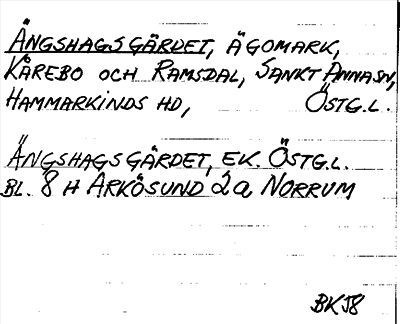 ÄNGSHAGSGÄRDET, ÄGOMARK,
KÅREBO OCH RAMSDAL, SANKT ANNA SN,
HAMMARKINDS HD, ÖSTG.L.
ÄNGSHAGSGÄRDET, EK. ÖSTG.L.
BL. 8 H ARKÖSUND 2a NORRUM
BK58